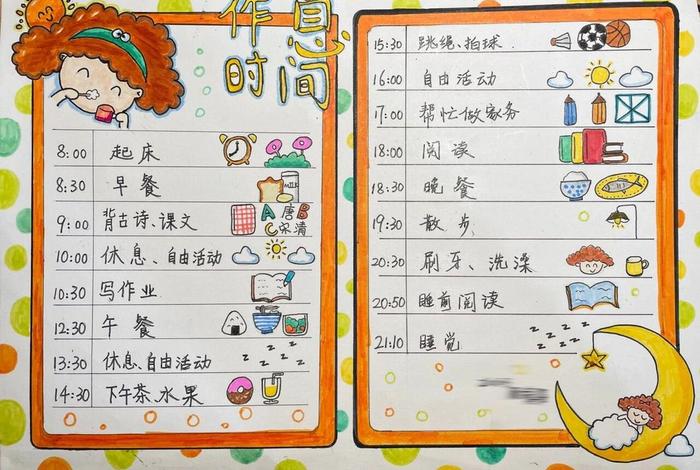 作息
时间
8:00 起床
8:30 早餐
MILK
9:00 背古诗、课文
A 唐 B
C 宋 清
10:00 休息、自由活动
10:30 写作业
12:30 午餐
13:30 休息、自由活动
z z z z z z
14:30 下午茶、水果
15:30 跳绳、拍球
16:00 自由活动
17:00 帮忙做家务
18:00 阅读
18:30 晚餐
19:30 散步
20:30 刷牙、洗澡
20:50 睡前阅读
21:10 睡觉
z z z z z z z z